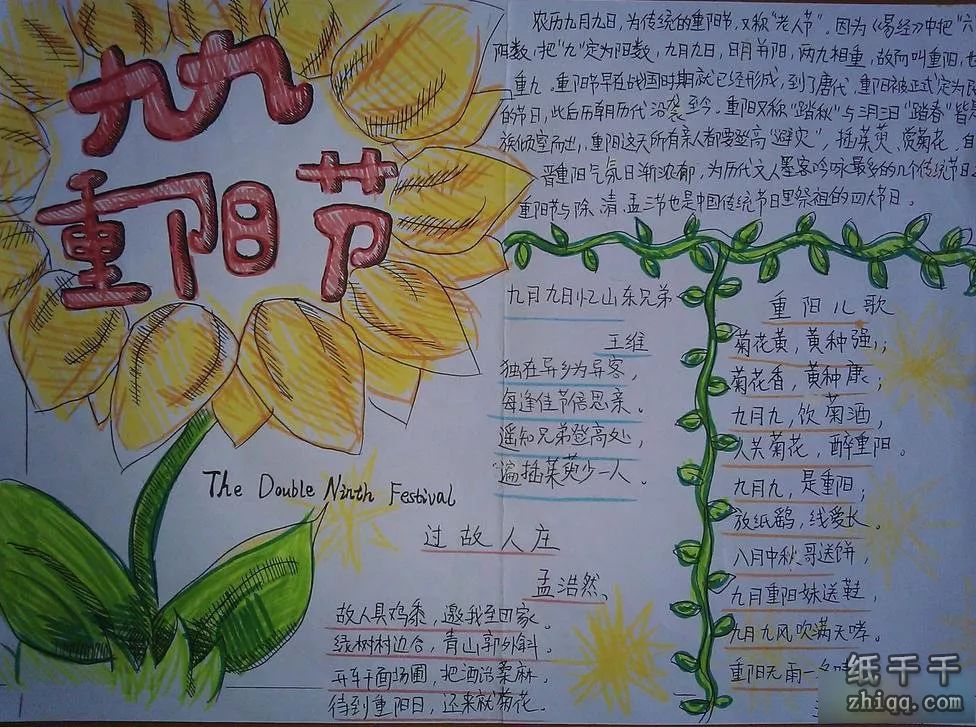 九九
重阳节
农历九月九日，为传统的重阳节，又称“老人节”。因为《易经》中把“六
阴数，把“九”定为阳数，九月九日，日月并阳，两九相重，故而叫重阳，也
重九。重阳节早在战国时期就已经形成，到了唐代，重阳被正式定为民
的节日，此后历朝历代沿袭至今。重阳又称“踏秋”与三月三日“踏春”皆
族倾室而出，重阳这天所有亲人都要登高“避灾”，插茱萸、赏菊花。自
晋重阳气氛日渐浓郁，为历代文人墨客吟咏最多的几个传统节日
重阳节与除、清、盂三节也是中国传统节日里祭祖的四大节日。
九月九日忆山东兄弟
王维
独在异乡为异客，
每逢佳节倍思亲。
遥知兄弟登高处，
遍插茱萸少一人。
The Double Ninth Festival
过故人庄
孟浩然
故人具鸡黍，邀我至田家。
绿树村边合，青山郭外斜。
开轩面场圃，把酒话桑麻，
待到重阳日，还来就菊花。
重阳儿歌
菊花黄，黄种强；
菊花香，黄种康；
九月九，饮菊酒，
人共菊花，醉重阳。
九月九，是重阳；
放纸鹞，线爱长。
八月中秋哥送饼，
九月重阳妹送鞋，
九月九风吹满天哮。
重阳无雨一
纸千千
zhiqq.com